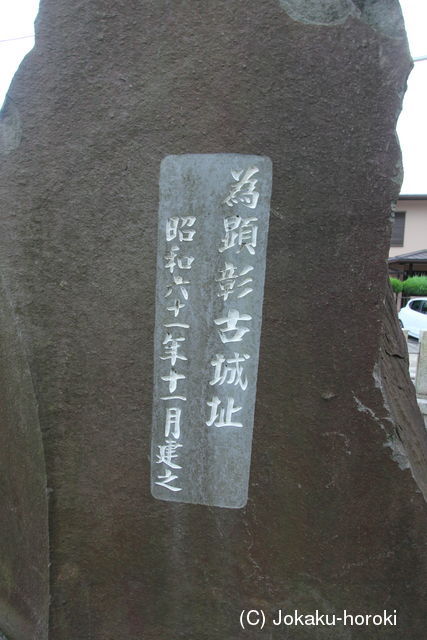 為顕彰古城址
昭和六十一年十一月建之
(C) Jokaku-horoki